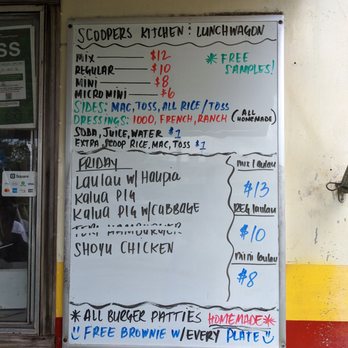 SCOOPERS KITCHEN: LUNCHWAGON
MIX $12
REGULAR $10
MINI $8
MICROMINI $6
* FREE SAMPLES!
SIDES: MAC, TOSS, ALL RICE/TOSS
DRESSINGS: 1000, FRENCH, RANCH (ALL HOMEMADE)
SODA, JUICE, WATER $1
EXTRA SCOOP RICE, MAC, TOSS $1
FRIDAY
LAULAU W/ HAUPIA
KALUA PIG
KALUA PIG W/CABBAGE
TERI HAMBURGER
SHOYU CHICKEN
mix laulau
$13
REG laulau
$10
mini laulau
$8
*ALL BURGER PATTIES HOMEMADE*
FREE BROWNIE W/EVERY PLATE
SS
Square